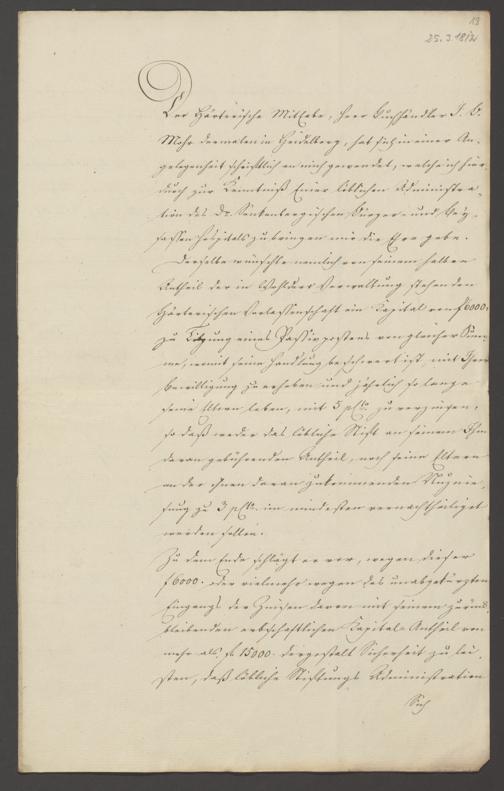 13
25.3.1812
Der Härterische Miterbe, Herr Buchhändler J. C.
Mohr dermalen in Heidelberg, hat sich in einer An-
gelegenheit schriftlich an mich gewendet, welche ich hier
durch zur Kenntniß Einer löblichen Administra-
tion des Dr. Senkenbergischen Bürger- und Bey-
sassen Hospitals zu bringen mir die Ehre gebe.
Derselbe wünschte nemlich von seinem halben
Antheil der in Wohlderer Verwaltung stehenden
Härterischen Verlassenschaft ein Kapital von f 6000.
zu Tilgung eines Passivpostens von gleicher Sum-
me, womit seine Handlung beschwert ist, mit Ihrer
Bewilligung zu erheben und jährlich so lange
seine Eltern leben, mit 5 pCto. zu verzinsen,
so daß weder das löbliche Stift an seinem Ihm
daran gebührenden Antheil, noch seine Eltern
an der ihnen daran zukommenden Nuznie-
sung zu 3 pCto. im mindesten vernachtheiliget
werden sollen.
Zu dem Ende schlägt er vor, wegen dieser
f 6000. oder vielmehr wegen des unabgekürzten
Eingangs der Zinsen davon mit seinem zurück
bleibenden erbschaftlichen Kapital-Antheil von
mehr als f 15000. dergestalt Sicherheit zu lei-
sten, daß löbliche Stiftungs Administration
Sich